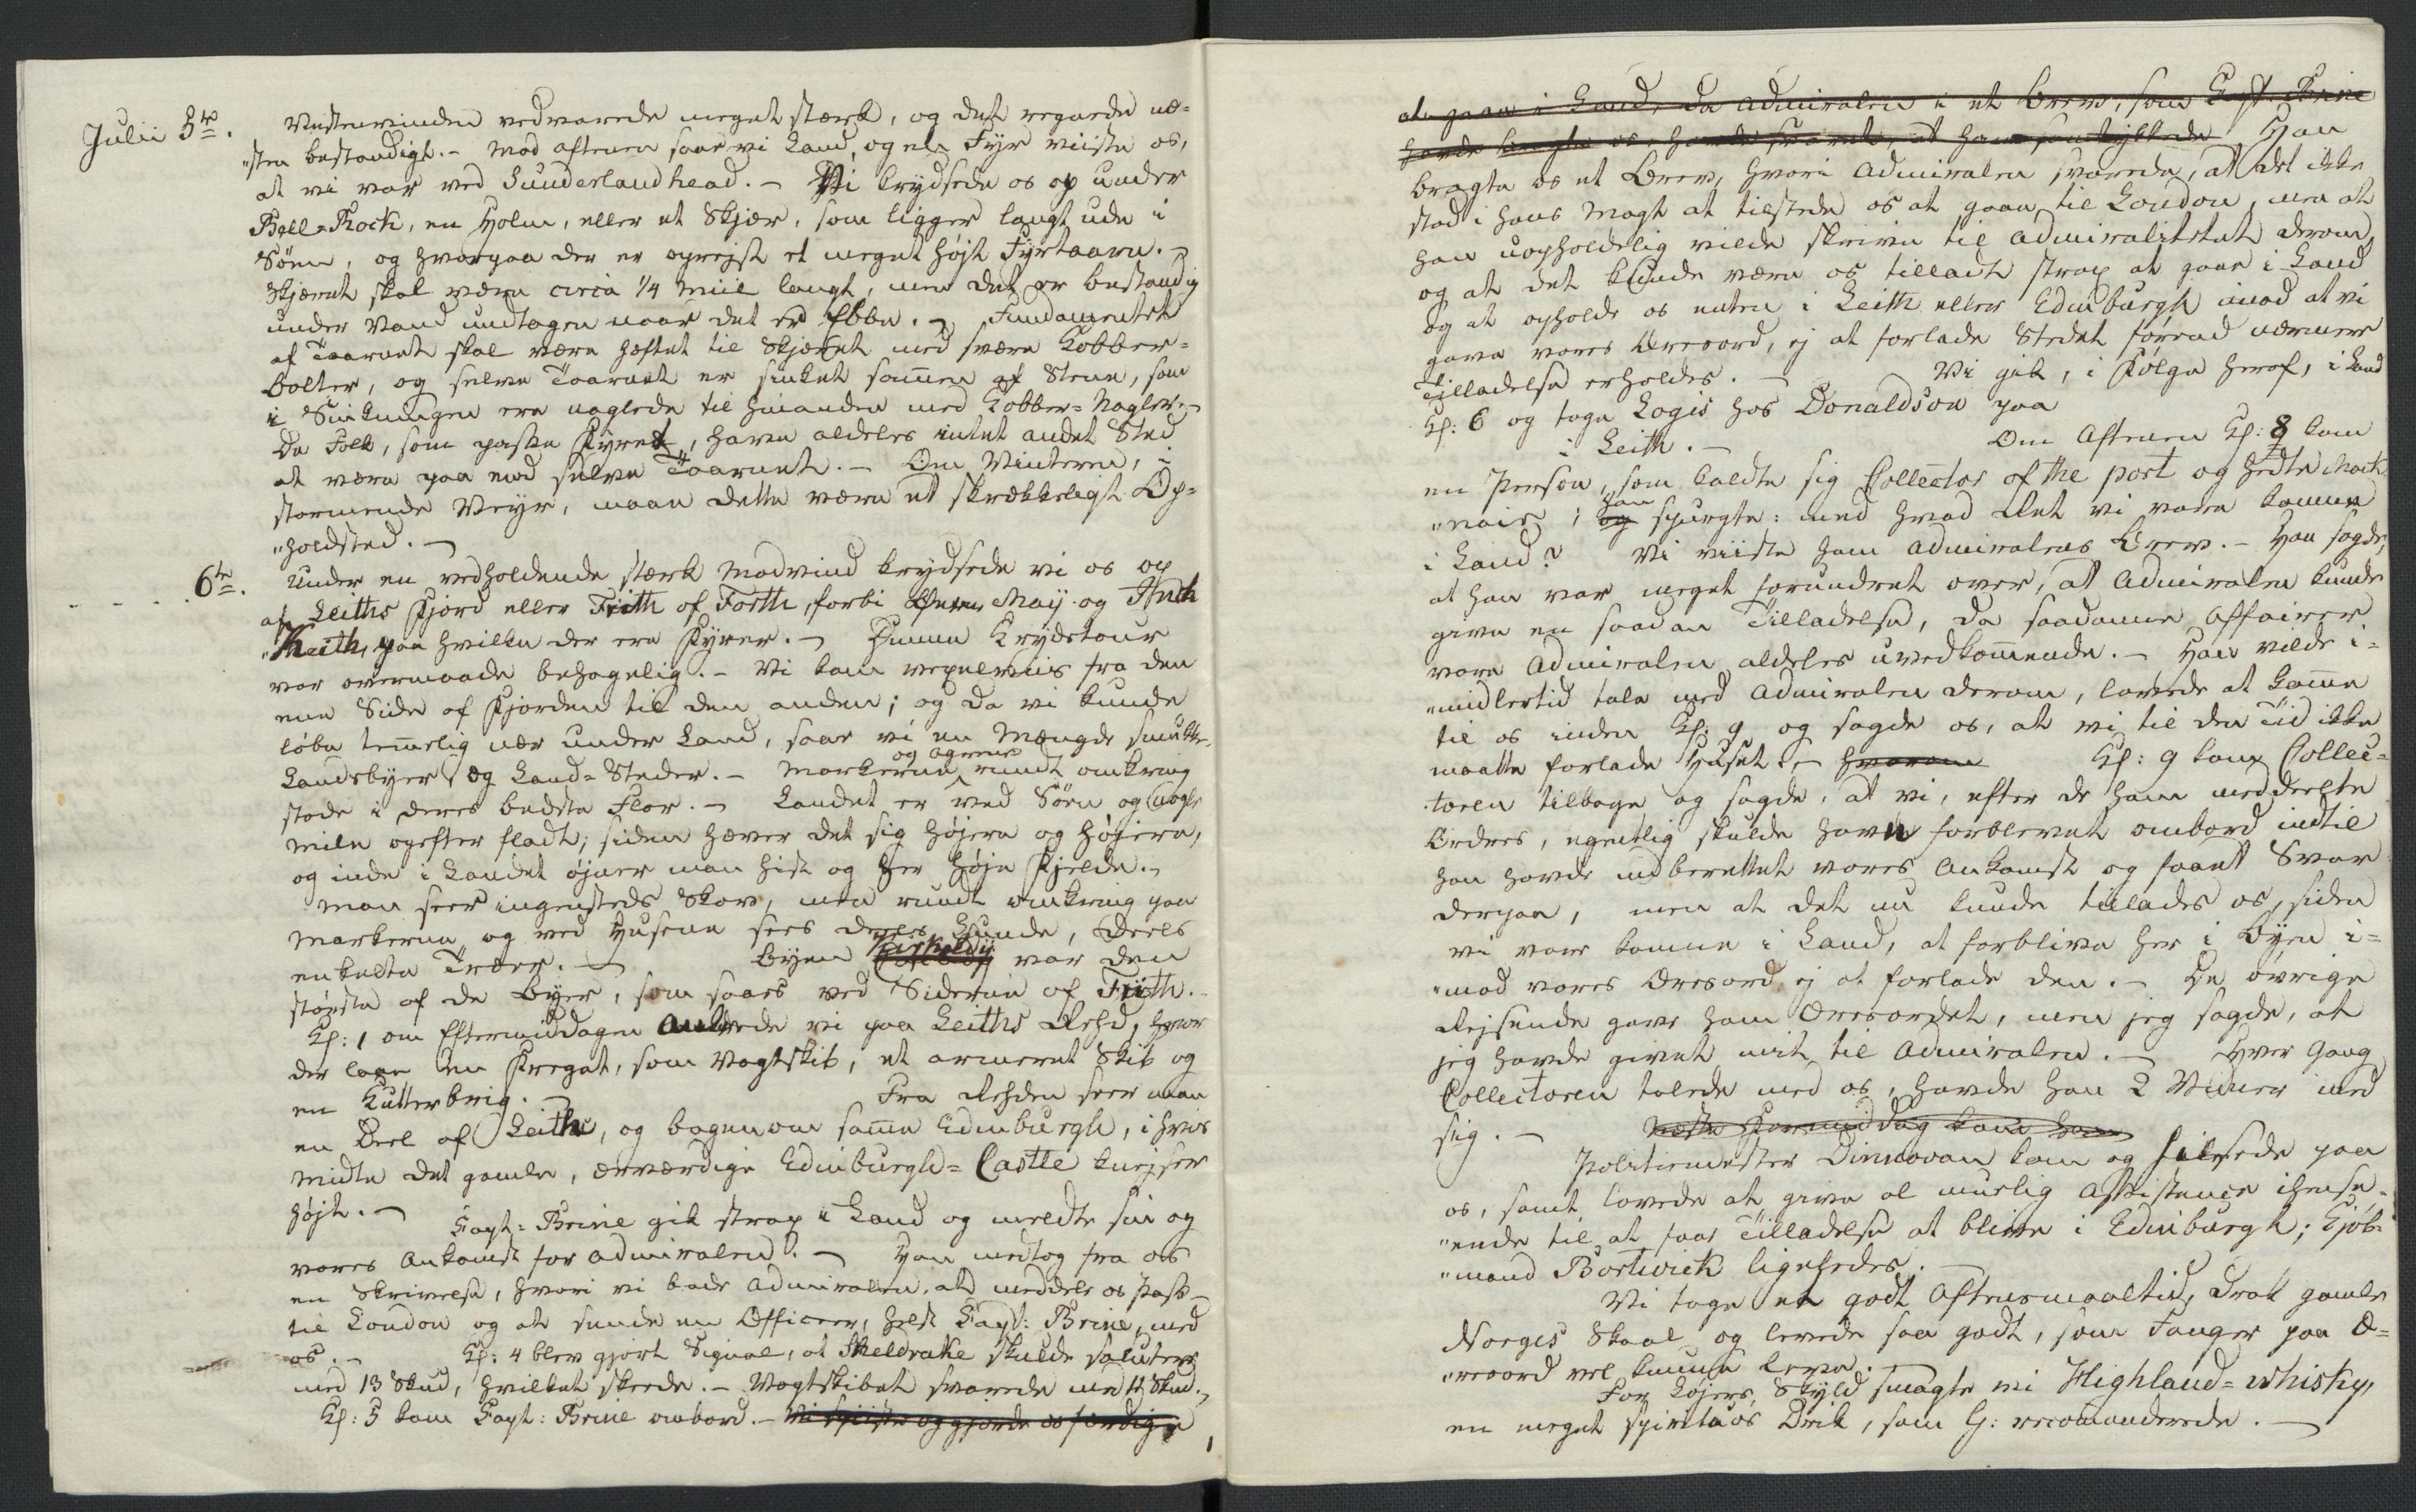 Julii 5te. Vestenvinden vedvarede meget stærk, og det regnede næ-
"sten bestandigt. - Mod Aftenen saae vi Land, og eln Fyr viiste os,
at vi var ved Sunderlandhead. - Vi krydsede os op under
Bell-Rock, en Holm, eller et Skjær, som ligger langt ude i
Söen, og hvorpaa der er oprejst et meget højt Fyrtaarn. -
Skjæret skal være circa 1/4 Miil langt, men det er bestandig
under Vand undtagen naar det er Ebbe. - Fundamentet
af Taarnet skal være hæftet til Skjæret med svære Kobber-
bolter, og selve Taarnet er sinket sammen af Stene, som
i Sinkningen ere naglede til hinanden med Kobber-Nagler. -
De Folk, som passe Fyret, have aldeles intet andet Sted
at være paa end selve Taarnet. - Om Vinteren, i
stormende Veyr, maae dette være et skrækkeligt Op-
"holdsted. -
6te. Under en vedholdende stærk Modvind krydsede vi os op
af Leiths Fjord eller Frith of Forth, forbi May og Inch
"Keith, paa hvilke der ere Fyrer. - Denne Krydstour
var overmaade behagelig. - Vi kom vexelviis fra den
ene Side af Fjorden til den anden; og da vi kunde
løbe temmelig nær under Land, saae vi en Mængde smukke
Landsbyer og Land-Steder. - Markerne og Agrene rundt omkring
stode i deres bedste Flor. - Landet er ved Söen og nogle
Mile opefter fladt; siden hæver det sig højere og højere,
og inde i Landet øjner man hist og her høje Fjelde. -
Man seer ingensteds Skov, men rundt omkring paa
Markerne og ved Husene sees deels Lunde, deels
enkelte Træer. - Byen Kirkaldy var den
største af de Byer, som saaes ved Siderne af Frith. -
Kl: 1 om Eftermiddagen ankrede vi paa Leiths Rehd, hvor
der laae en Fregat, som Vagtskib, et armeret Skib og
en Kutterbrig. - Fra Rehden seer man
en Deel af Leith, og bagenom samme Edinburgh, i hvis
Midte det gamle, ærværdige Edinburgh-Castle knejser
højt. -
Capt: Brine gik strax i Land og meldte sin og
vores Ankomst for Admiralen. - Han medtog fra os
en Skrivelse, hvori vi bade Admiralen, at meddele os Pass
til London og at sende en Officeer, helst Capt: Brine, med
os. - Kl: 4 blev gjort Signal, at Sheldrake skulde salutere
med 13 Skud, hvilket skeede. - Vagtskibet svarede med 11 Skud. -
Kl: 5 kom Capt: Brine ombord. - Vi spiiste og gjorde os færdige
at gaae i Land, da Admiralen i et Brev, som Capt Brine
havde bragte os, havde svaret, at han samtykkede Han
bragte os et Brev, hvori Admiralen svarede, at det ikke
stod i hans Magt at tilstede os at gaae til London, men at
han uopholdelig vilde skrive til Admiralitetet derom,
og at det kunde være os tilladt strax at gaae i Land
og at opholde os enten i Leith eller Edinburgh imod at vi
gave vores Æresord, ej at forlade Stedet førend nærmere
Tilladelse erholdes. - Vi gik, i Følge heraf, i Land
Kl: 6 og toge Logis hos Donaldson paa
i Leith. - Om Aftenen Kl: 8 kom
en Person, som kaldte sig Collector of the port og hedte Mack-
"nair; og han spurgte: med hvad Ret vi vare komne
i Land? Vi viiste ham Admiralens Brev. - Han sagde,
at han var meget forundret over, at Admiralen kunde
give en saadan Tilladelse, da saadanne Affairer
vare Admiralen aldeles uvedkommende. - Han vilde i-
"midlertid tale med Admiralen derom, lovede at komme
til os inden Kl: 9 og sagde os, at vi til den Tid ikke
maatte forlade Huset. - hvorom Kl: 9 kom Collec-
"toren tilbage og sagde, at vi, efter de ham meddeelte
Ordres, egentlig skulde have forblevet ombord indtil
han havde indberettet vores Ankomst og faaet Svar
derpaa, men at det nu kunde tillades os, siden
vi vare komne i Land, at forblive her i Byen i-
"mod vores Æresord, ej at forlade den. - De øvrige
Rejsende gave ham Æresordet, men jeg sagde, at
jeg havde givet mit til Admiralen. - Hver Gang
Collectoren talede med os, havde han 2 Vidner med
sig. - Næste Formiddag kom han
Politiemester Dinnovan kom og hilsede paa
os, samt lovede at give al muelig Assistence i hense-
"ende til at faae Tilladelse at blive i Edinburgh; Kjøb-
"mand Bortwick ligeledes. -
Vi toge et godt Aftensmaaltid, drak gamle
Norges Skaal og levede saa godt, som Fanger paa Æ-
"resord vel kunne leve. -
For Løjers Skyld smagte vi Highland-whisky,
en meget spirituös Drik, som G: recomanderede. -